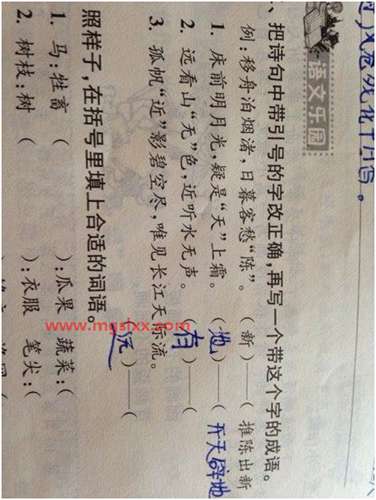 语文乐园
、把诗句中带引号的字改正确,再写一个带这个字的成语。
例:移舟泊烟渚,日暮客愁“陈”。 (新)——(推陈出新
1. 床前明月光,疑是“天”上霜。 (地)——(开天辟地
2. 远看山“无”色,近听水无声。 (有)——(
3. 孤帆“近”影碧空尽,唯见长江天际流。 (远)——(
照样子,在括号里填上合适的词语。
1. 马:牲畜 ( ):瓜果 蔬菜:(
2. 树枝:树 ( ):衣服 笔尖:(
www.mgslxx.com